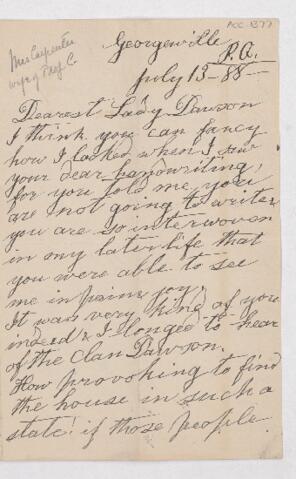 ACC. 1377
Mrs Carpenter
wife of Prof C.
Georgeville
P.Q.
July 15-88-
Dearest Lady Dawson
I think you can fancy
how I looked when I saw
your dear handwriting,
for you told me you
are not going to write,
you are so interwoven
in my later life that
you were able to see
me in pain & joy,
It was very kind of you
indeed & I longed to hear
of the Clan Dawson.
How provoking to find
the house in such a
state! if those people